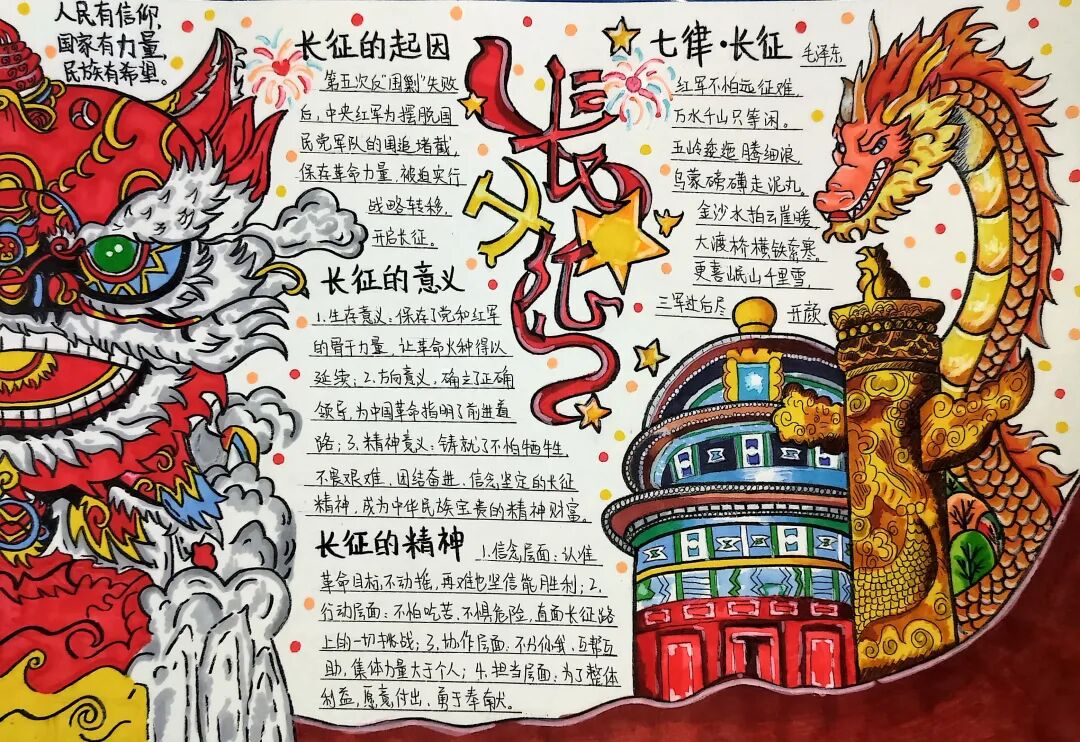 人民有信仰,
国家有力量,
民族有希望。
长征的起因
第五次反"围剿"失败
后,中央红军为摆脱国
民党军队的围追堵截,
保存革命力量,被迫实行
战略转移,
开启长征。
长征的意义
1.生存意义:保存了党和红军
的骨干力量,让革命火种得以
延续;2.方向意义,确立了正确
领导,为中国革命指明了前进道
路;3.精神意义:铸就了不怕牺牲
不畏艰难、团结奋进、信念坚定的长征
精神,成为中华民族宝贵的精神财富。
长征的精神
1.信念层面:认准
革命目标不动摇,再难也坚信能胜利;2.
行动层面:不怕吃苦、不惧危险,直面长征路
上的一切挑战;3.协作层面:不分你我、互帮互
助,集体力量大于个人;4.担当层面:为了整体
利益,愿意付出、勇于奉献。
长征
七律·长征 毛泽东
红军不怕远征难,
万水千山只等闲。
五岭逶迤腾细浪,
乌蒙磅礴走泥丸。
金沙水拍云崖暖,
大渡桥横铁索寒。
更喜岷山千里雪,
三军过后尽开颜。